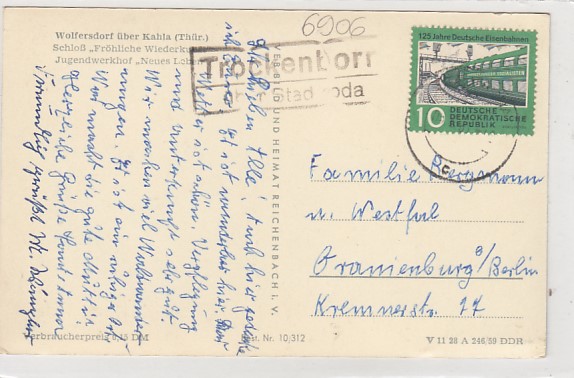 Wolfersdorf über Kahla (Thür.)
Schloß „Fröhliche Wiederku
Jugendwerkhof „Neues Leben
6906
Trockenborn
Stadtroda
125 Jahre Deutsche Eisenbahnen
10
DEUTSCHE
DEMOKRATISCHE
REPUBLIK
VEB BILD UND HEIMAT REICHENBACH I. V.
Ihr lieben Alle! Auch hier gedenke
ich Eurer. Es ist wunderbar hier. Das
Wetter ist schön. Verpflegung
und Unterkunft sehr gut.
Wir machen viel Wald
Es ist ein
Was macht die gute Mutti?
Herzliche Grüße
Grüße
Familie Bergmann
u. Westfal
Oranienburg b/Berlin
Kremmerstr. 17
Verbraucherpreis 0,15 DM
Best. Nr. 10/312
V 11 28 A 246/59 DDR